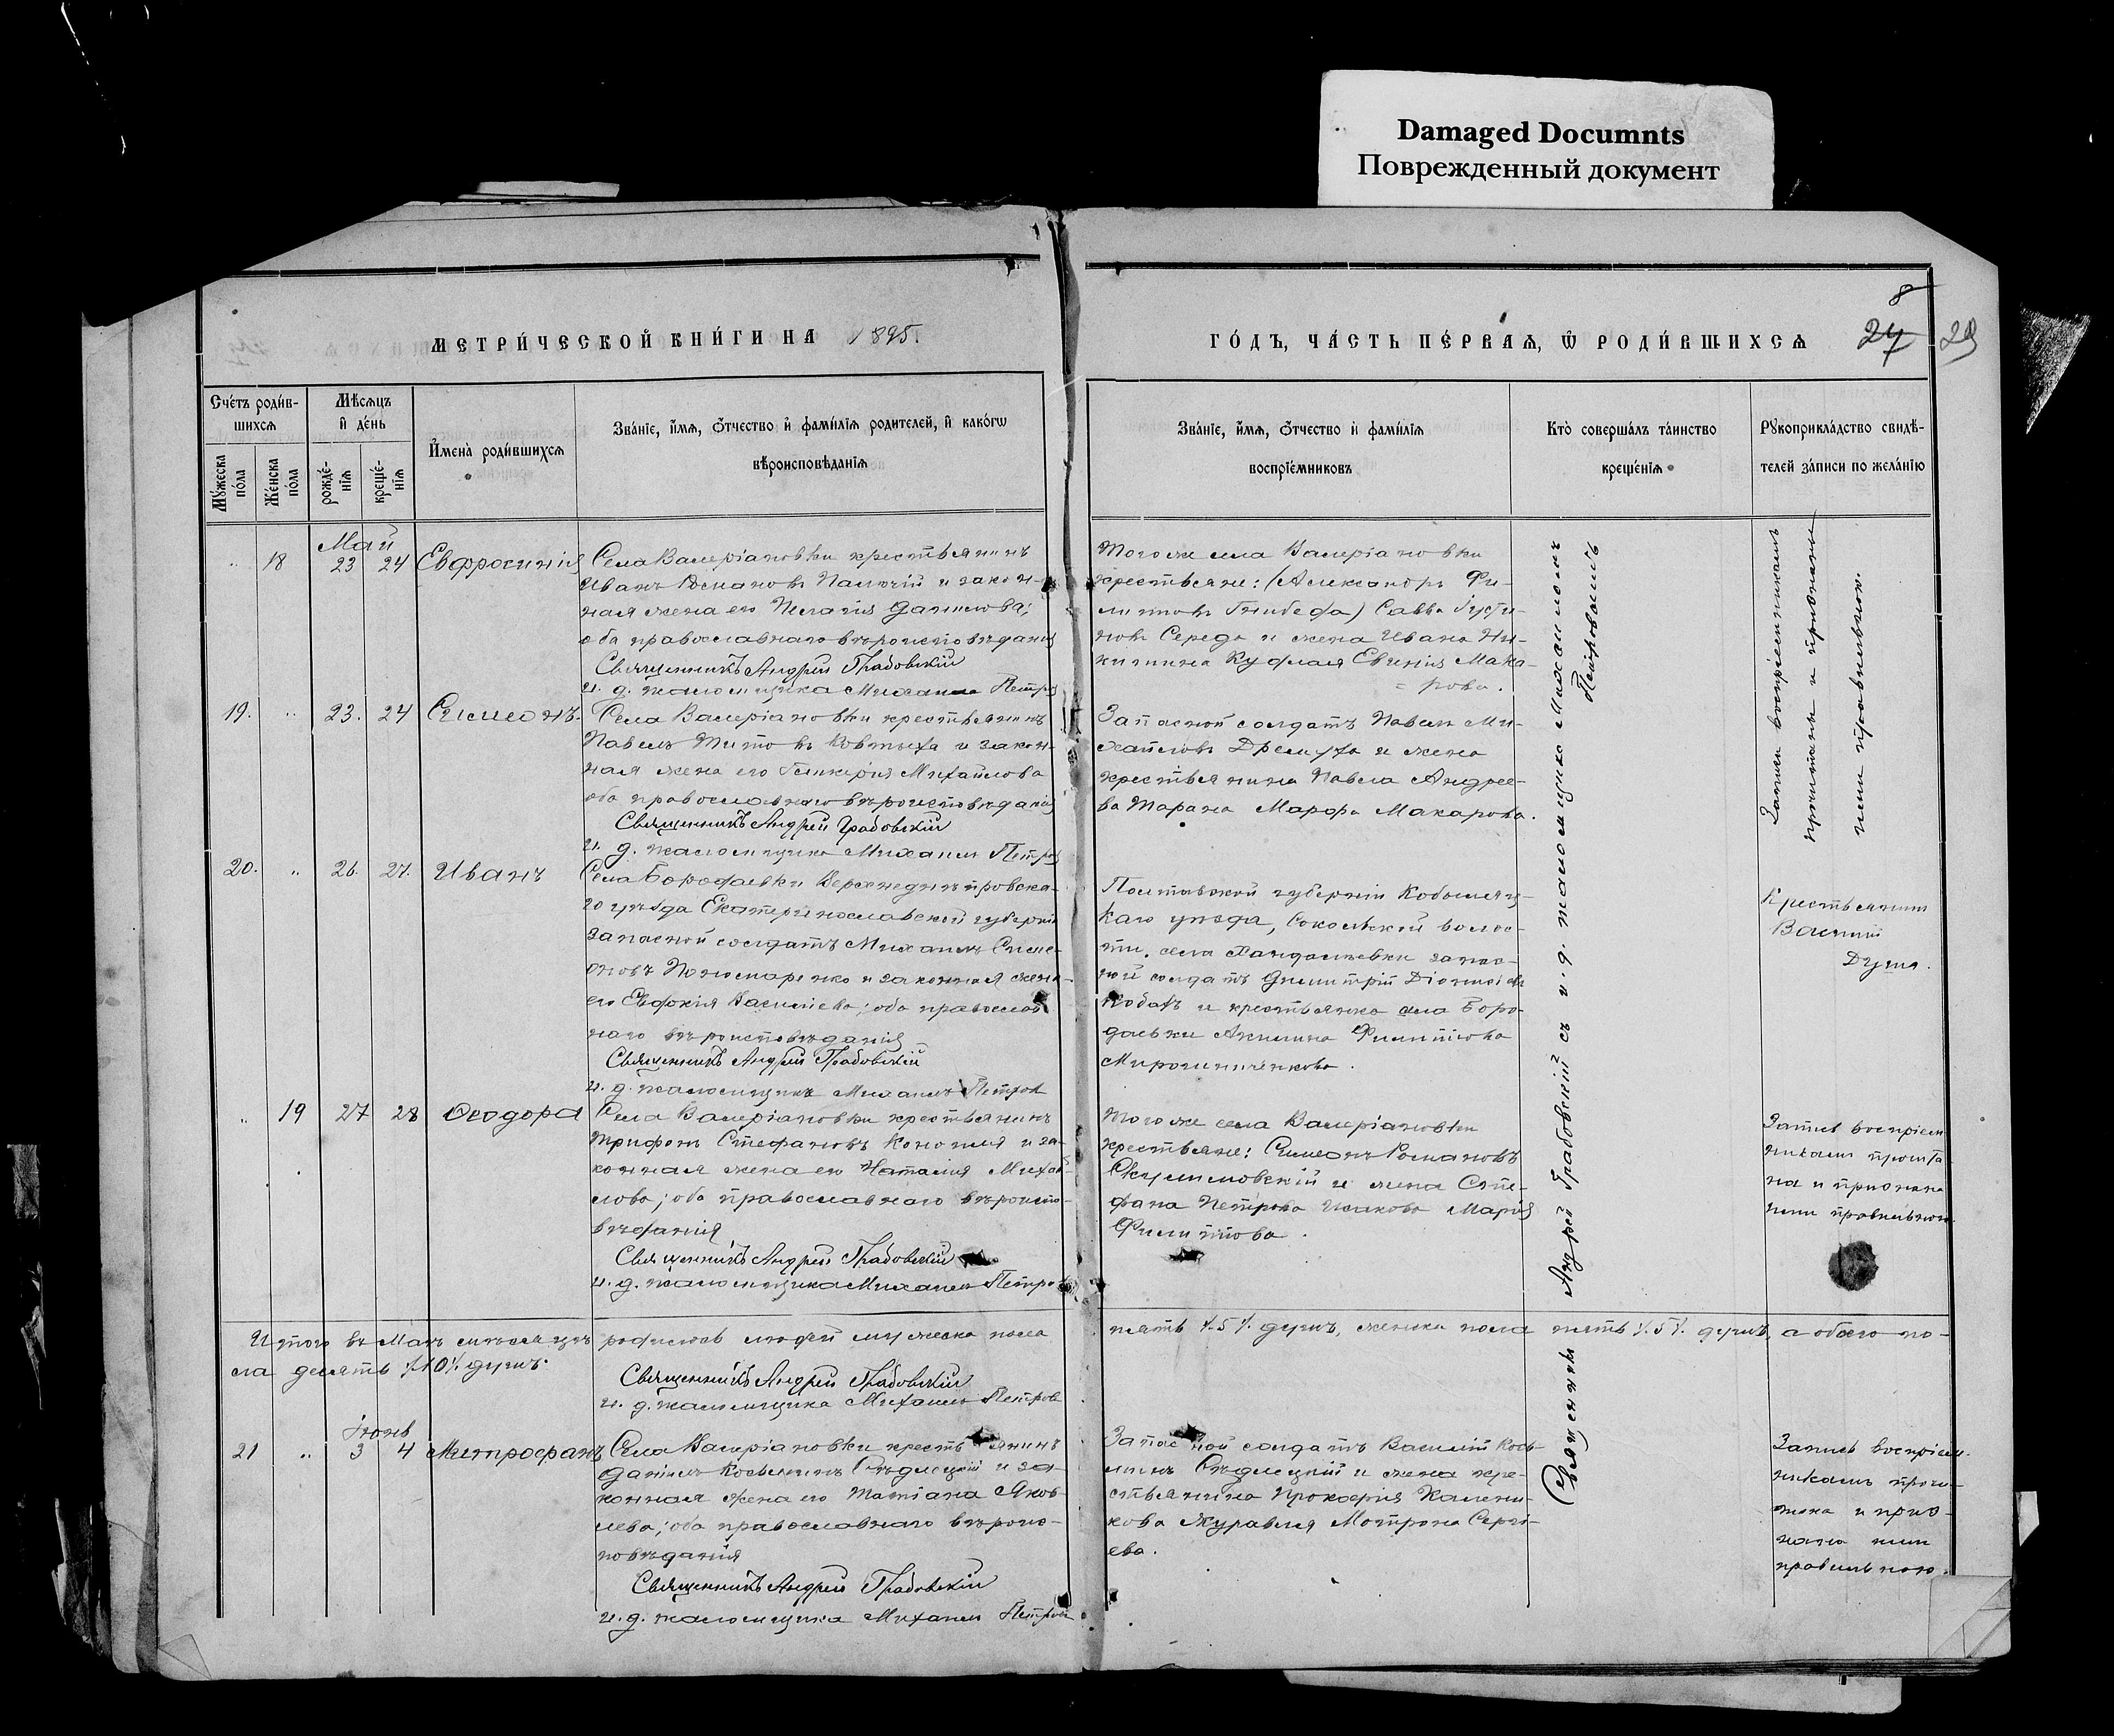 Damaged Documnts
Поврежденный документ
МЕТРИ́ЧЕСКОЙ КНИ́ГИ НА 1895.
ГО́ДЪ, ЧА́СТЬ ПЕ́РВАѦ, Ѿ РОДИ́ВШИХСѦ
8
27
Сче́тъ роди́в-
шихсѧ
Мѣ́сѧцъ
и҆ де́нь
Му́жеска по́ла
Же́нска по́ла
рожде́-
нїѧ
креще́-
нїѧ
И҆мена̀ роди́вшихсѧ
Зва́нїе, и҆́мѧ, ѻ҆́тчество и҆ фами́лїѧ роди́телей, и҆ како́гѡ
вѣроисповѣ́данїѧ
Зва́нїе, и҆́мѧ, ѻ҆́тчество и҆ фами́лїѧ
воспрїе́мниковъ
Кто̀ соверша́лъ та́инство
креще́нїѧ
Рꙋкоприкла́дство свидѣ́-
телей за́писи по жела́нїю
Май
18 23 24 Евфросинія
Села Валеріановки крестьянинъ
Иванъ Романовъ и закон-
ная жена его Пелагія Данилова;
оба православнаго вѣроисповѣданія
Священникъ Андрей Грабовскій
и. д. псаломщика Михаилъ Петров
Того же села Валеріановки
крестьяне: (Александръ Фи-
липповъ) Савва Густи-
новъ Середа и жена Ивана Ни-
китина Евгенія Мака-
= рова.
Записи воспріемникамъ
прочитаны и признаны
ими правильными.
19. 23. 24 Симеонъ.
Села Валеріановки крестьянинъ
Павелъ Титовъ Ковтыха и закон-
ная жена его Гликерія Михайлова
оба православнаго вѣроисповѣданія
Священникъ Андрей Грабовскій
и. д. псаломщика Михаилъ Петров
Запасной солдатъ Павелъ Ми-
хайловъ Дремуха и жена
крестьянина Павла Андрее-
ва Тарана Марфа Макарова.
20. 26. 27. Иванъ
Села Бородаевки Верхнеднѣпровска-
го уѣзда Екатеринославской губерніи
запасной солдатъ Михаилъ Симе-
оновъ Пономаренко и законная жена
его Евдокія Василіева; оба православ
наго вѣроисповѣданія
Священникъ Андрей Грабовскій
и. д. псаломщика Михаилъ Петров
Полтавской губерніи Кобыляц-
каго уѣзда, Сокольской волос-
ти, села запас-
ной солдатъ Димитрій
и крестьянка села Боро-
даевки Акилина Филиппова
Мирошниченкова.
Крестьянинъ
Василій
Душа.
19 27 28 Ѳеодора
Села Валеріановки крестьянинъ
Трифонъ Стефановъ Конопля и за-
конная жена его Наталія Михай-
лова; оба православнаго вѣроиспо-
вѣданія
Священникъ Андрей Грабовскій
и. д. псаломщика Михаилъ Петров
Того же села Валеріановки
крестьяне: Симеонъ Романовъ
и жена Сте-
фана Петрова Марія
Филиппова.
Запись воспріем
никамъ прочита
на и признана
ими правильною
Священникъ Андрей Грабовскій съ и. д. псаломщика Михаиломъ
Петровымъ
Итого въ Маѣ мѣсяцѣ родилось людей мужеска пола пять ⁒5⁒ душъ, женска пола пять ⁒5⁒ душъ, а обоего по-
ла десять ⁒10⁒ душъ.
Священникъ Андрей Грабовскій
и. д. псаломщика Михаилъ Петров
Іюнь
21 3 4 Митрофанъ
Села Валеріановки крестьянинъ
Даніилъ Косьминъ Сѣдлецкій и за-
конная жена его Татіана Яков-
лева; оба православнаго вѣроис-
повѣданія
Священникъ Андрей Грабовскій
и. д. псаломщика Михаилъ Петров
Запасной солдатъ Василій Кось-
минъ Сѣдлецкій и жена кре-
стьянина Прокофія Калени-
кова Журавля Мотрона Сергі-
ева.
Запись воспріем-
никамъ прочи-
тана и приз-
нана ими
правильною.